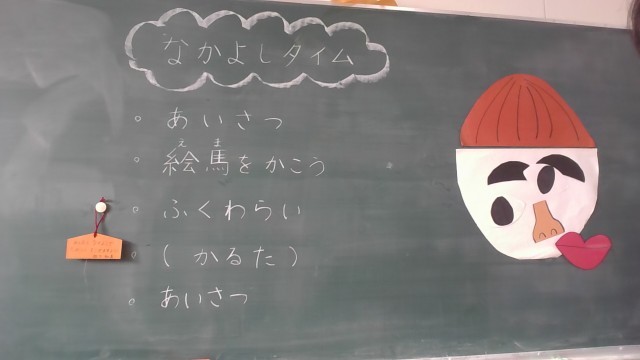 なかよしタイム
。あいさつ
。絵馬をかこう
。ふくわらい
。(かるた)
。あいさつ